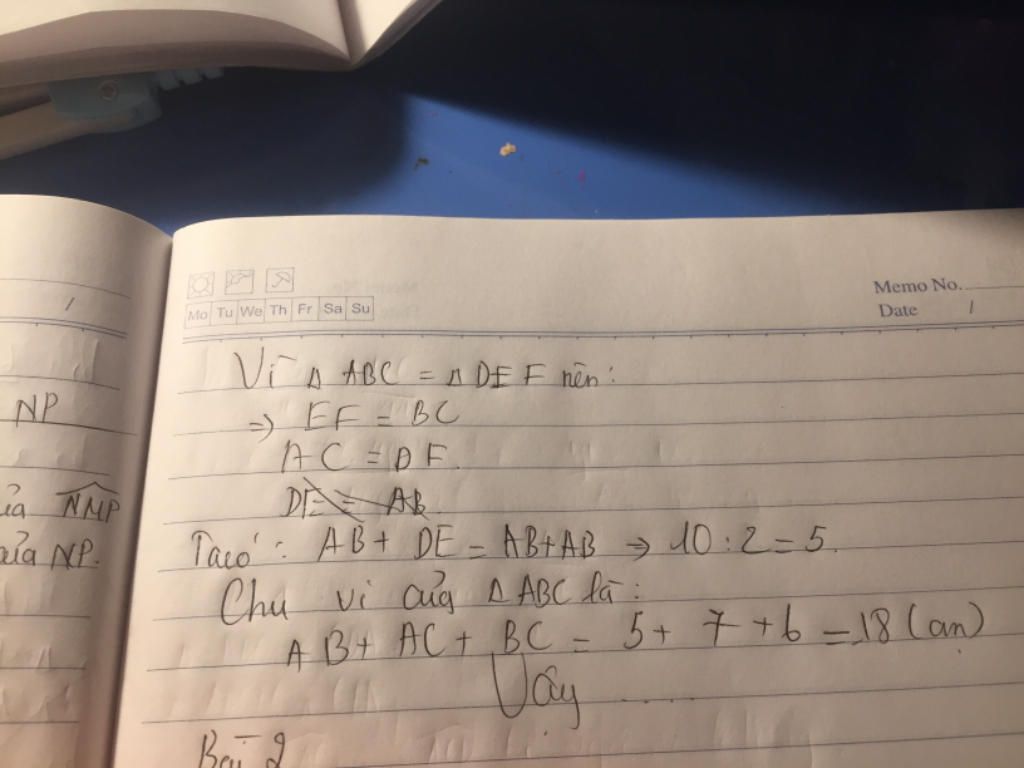 Memo No.
Date /
Mo Tu We Th Fr Sa Su
/
NP
ủa NMP
của NP.
Vì Δ ABC = Δ DEF nên:
=> EF = BC
AC = DF.
DE = AB
Ta có: AB + DE = AB+AB => 10 : 2 = 5.
Chu vi của Δ ABC là:
AB + AC + BC = 5 + 7 + 6 = 18 (cm)
Vậy .....
Bài 2